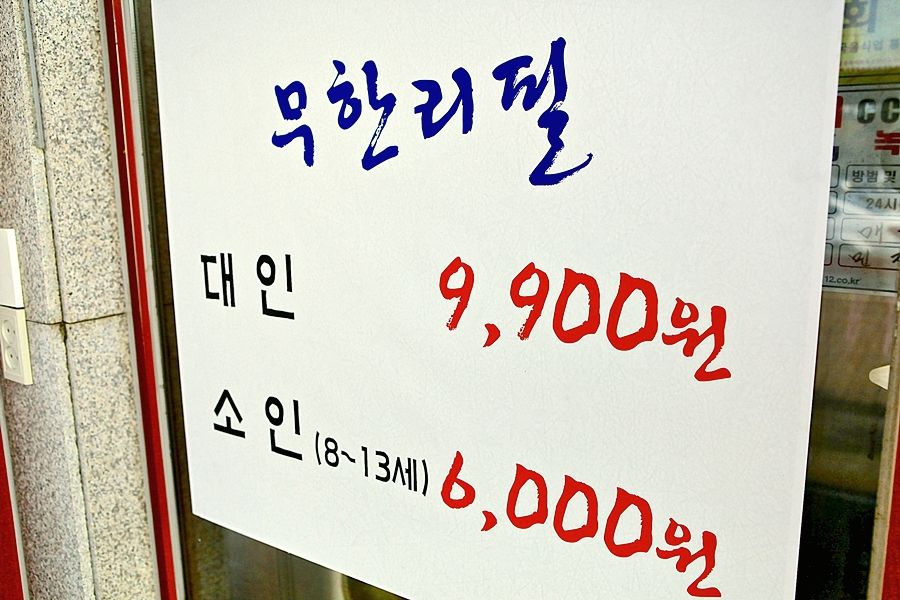 무한리필
대인 9,900원
소인 (8~13세) 6,000원
회
CC
녹
방범 및
24시
12.co.kr